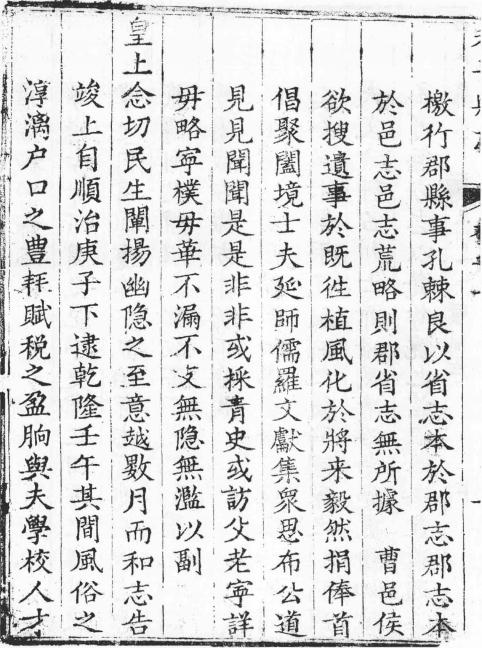 檄行郡縣事孔棘良以省志本於郡志郡志本
於邑志邑志荒略則郡省志無所據　曹邑侯
欲搜遺事於既徃植風化於將来毅然捐俸首
倡聚闔境士夫延師儒羅文獻集衆思布公道
見見聞聞是是非非或採青史或訪父老寧詳
毋略寧樸毋華不漏不支無隐無濫以副
皇上念切民生闡揚幽隐之至意越數月而和志告
竣上自順治庚子下逮乾隆壬午其間風俗之
淳漓户口之豊耗賦税之盈朒與夫學校人才